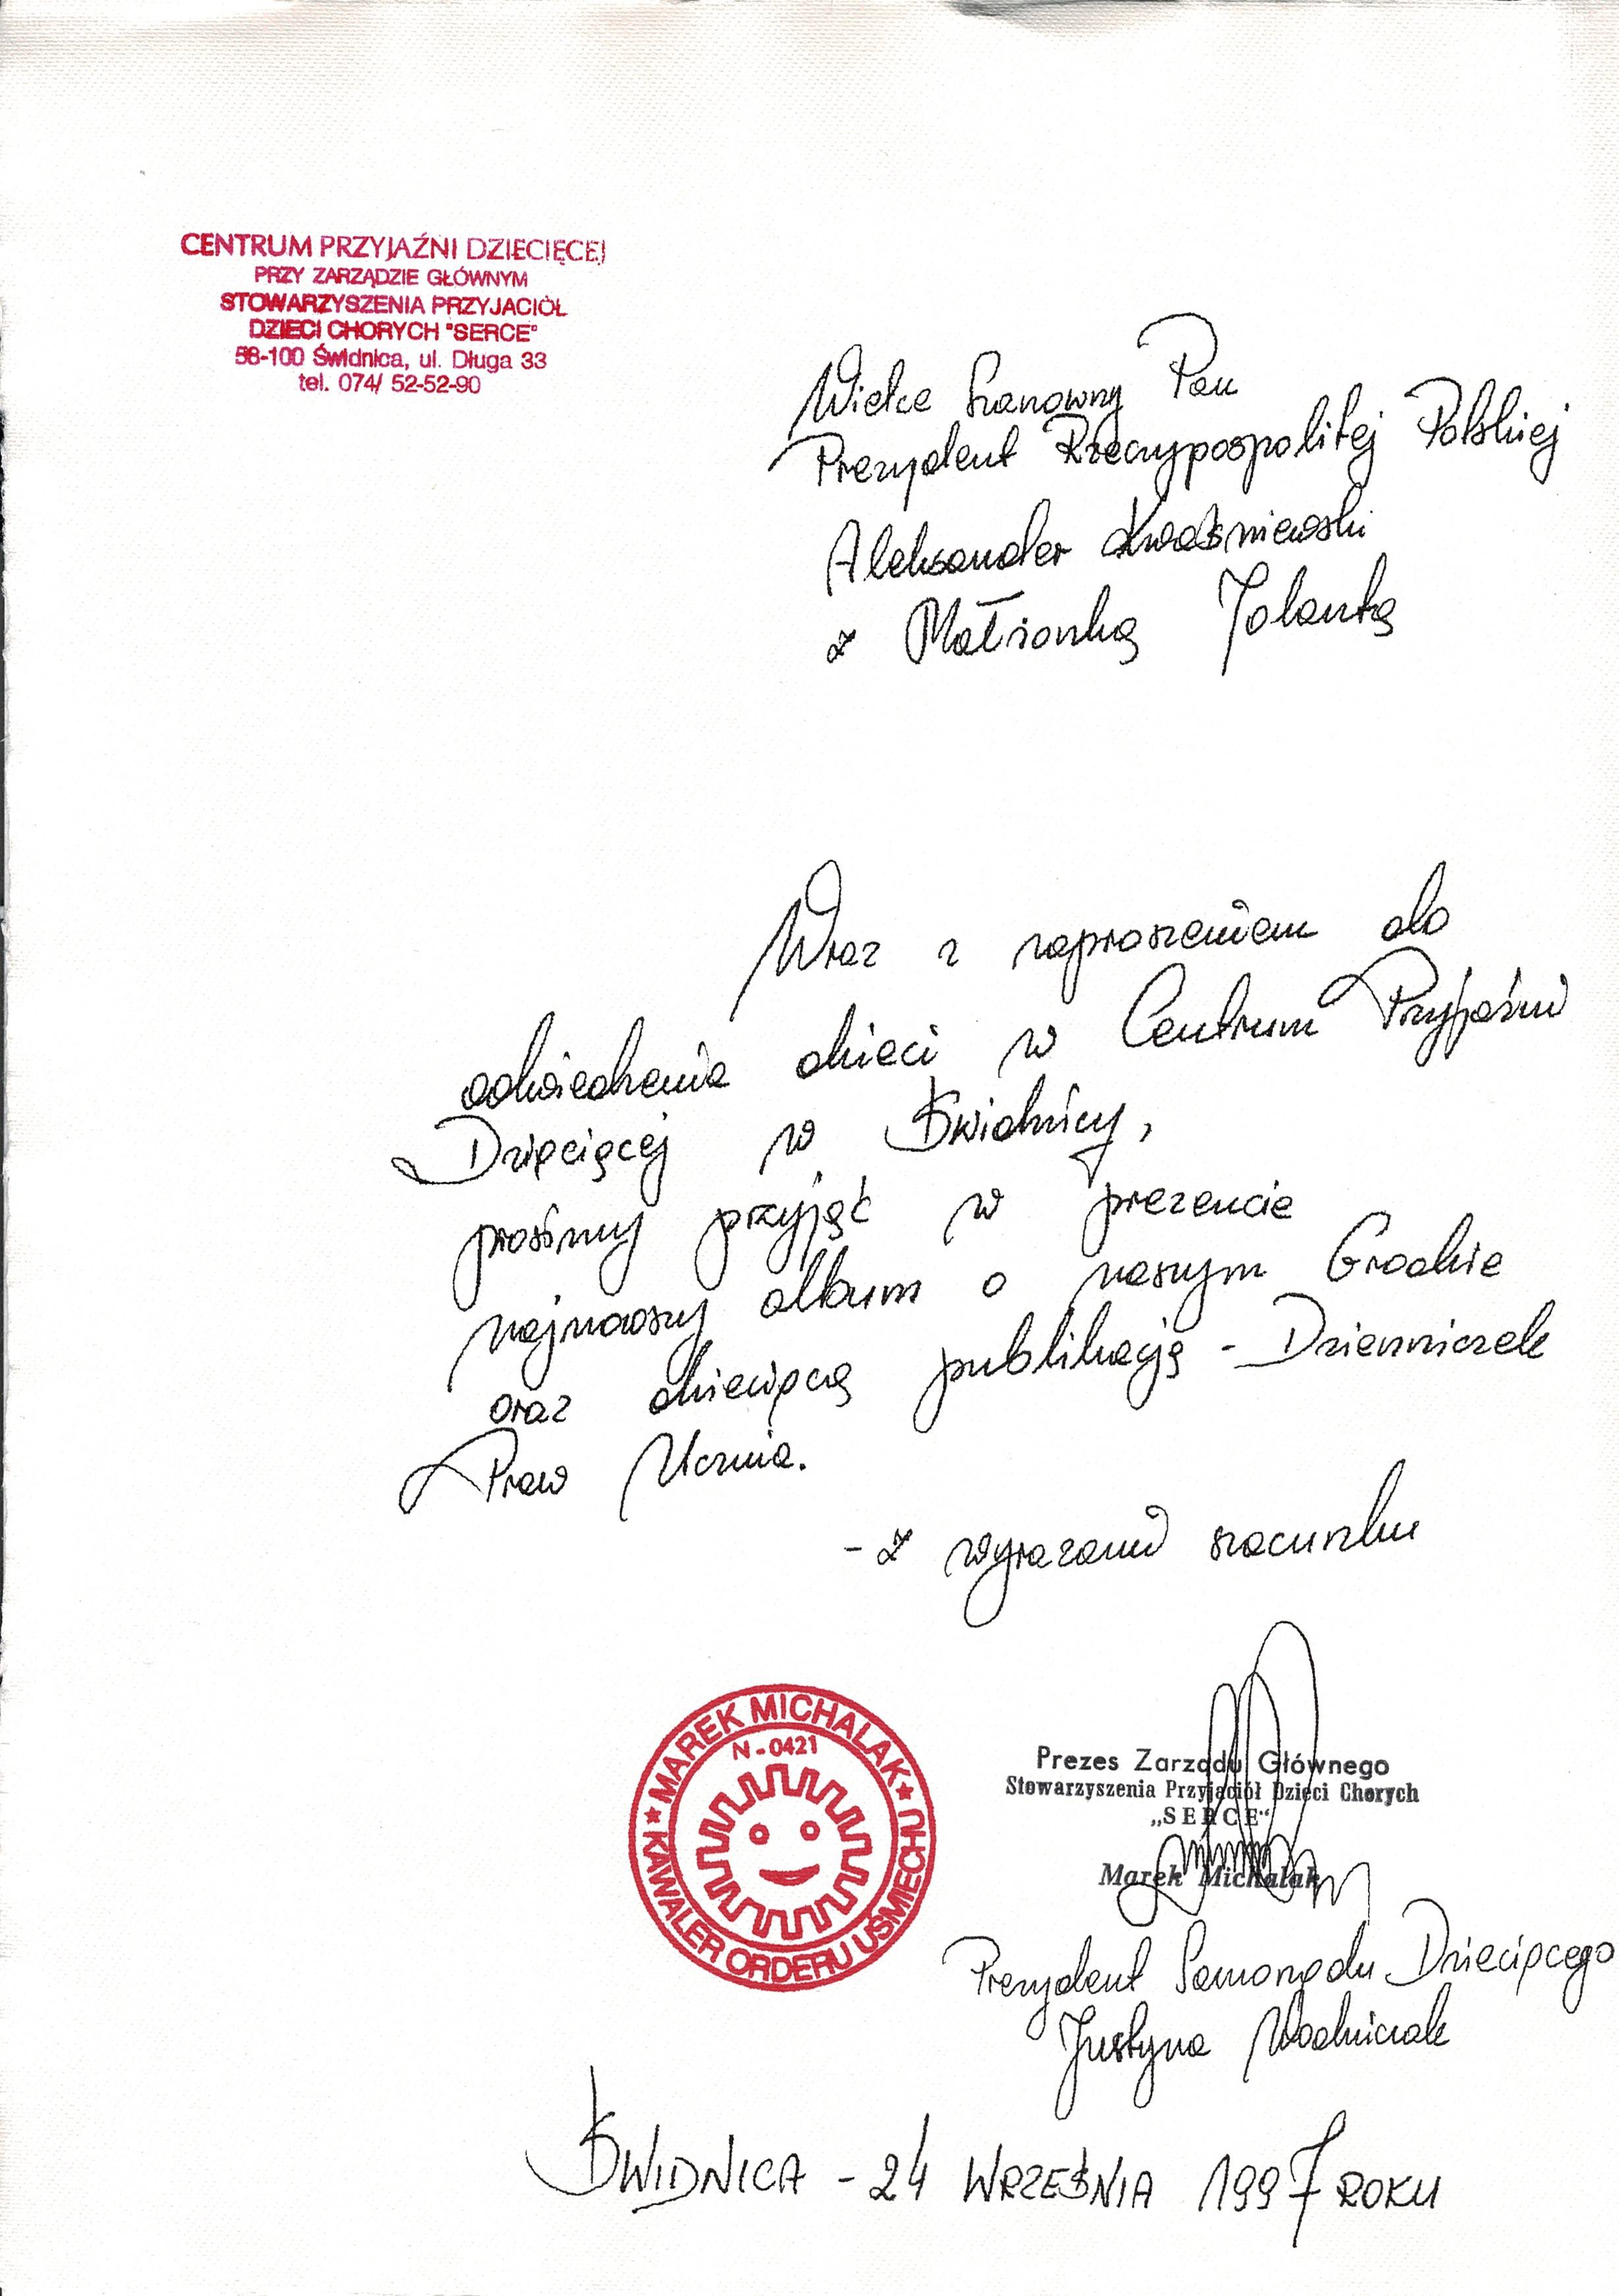 CENTRUM PRZYJAŹNI DZIECIĘCEJ
PRZY ZARZĄDZIE GŁÓWNYM
STOWARZYSZENIA PRZYJACIÓŁ
DZIECI CHORYCH "SERCE"
58-100 Świdnica, ul. Długa 33
tel. 074/ 52-52-90
Wielce Szanowny Pan
Prezydent Rzeczypospolitej Polskiej
Aleksander Kwaśniewski
z Małżonką Jolantą
Wraz z zaproszeniem do
odwiedzenia dzieci w Centrum Przyjaźni
Dziecięcej w Świdnicy,
prosimy przyjąć w prezencie
najnowszy album o naszym Grodzie
oraz dziecięcą publikację - Dzienniczek
Praw Ucznia.
- Z wyrazami szacunku
MAREK MICHALAK
N-0421
KAWALER ORDERU UŚMIECHU
Prezes Zarządu Głównego
Stowarzyszenia Przyjaciół Dzieci Chorych
„SERCE"
Marek Michalak
Prezydent Samorządu Dziecięcego
Justyna Wodniczak
ŚWIDNICA - 24 WRZEŚNIA 1997 ROKU